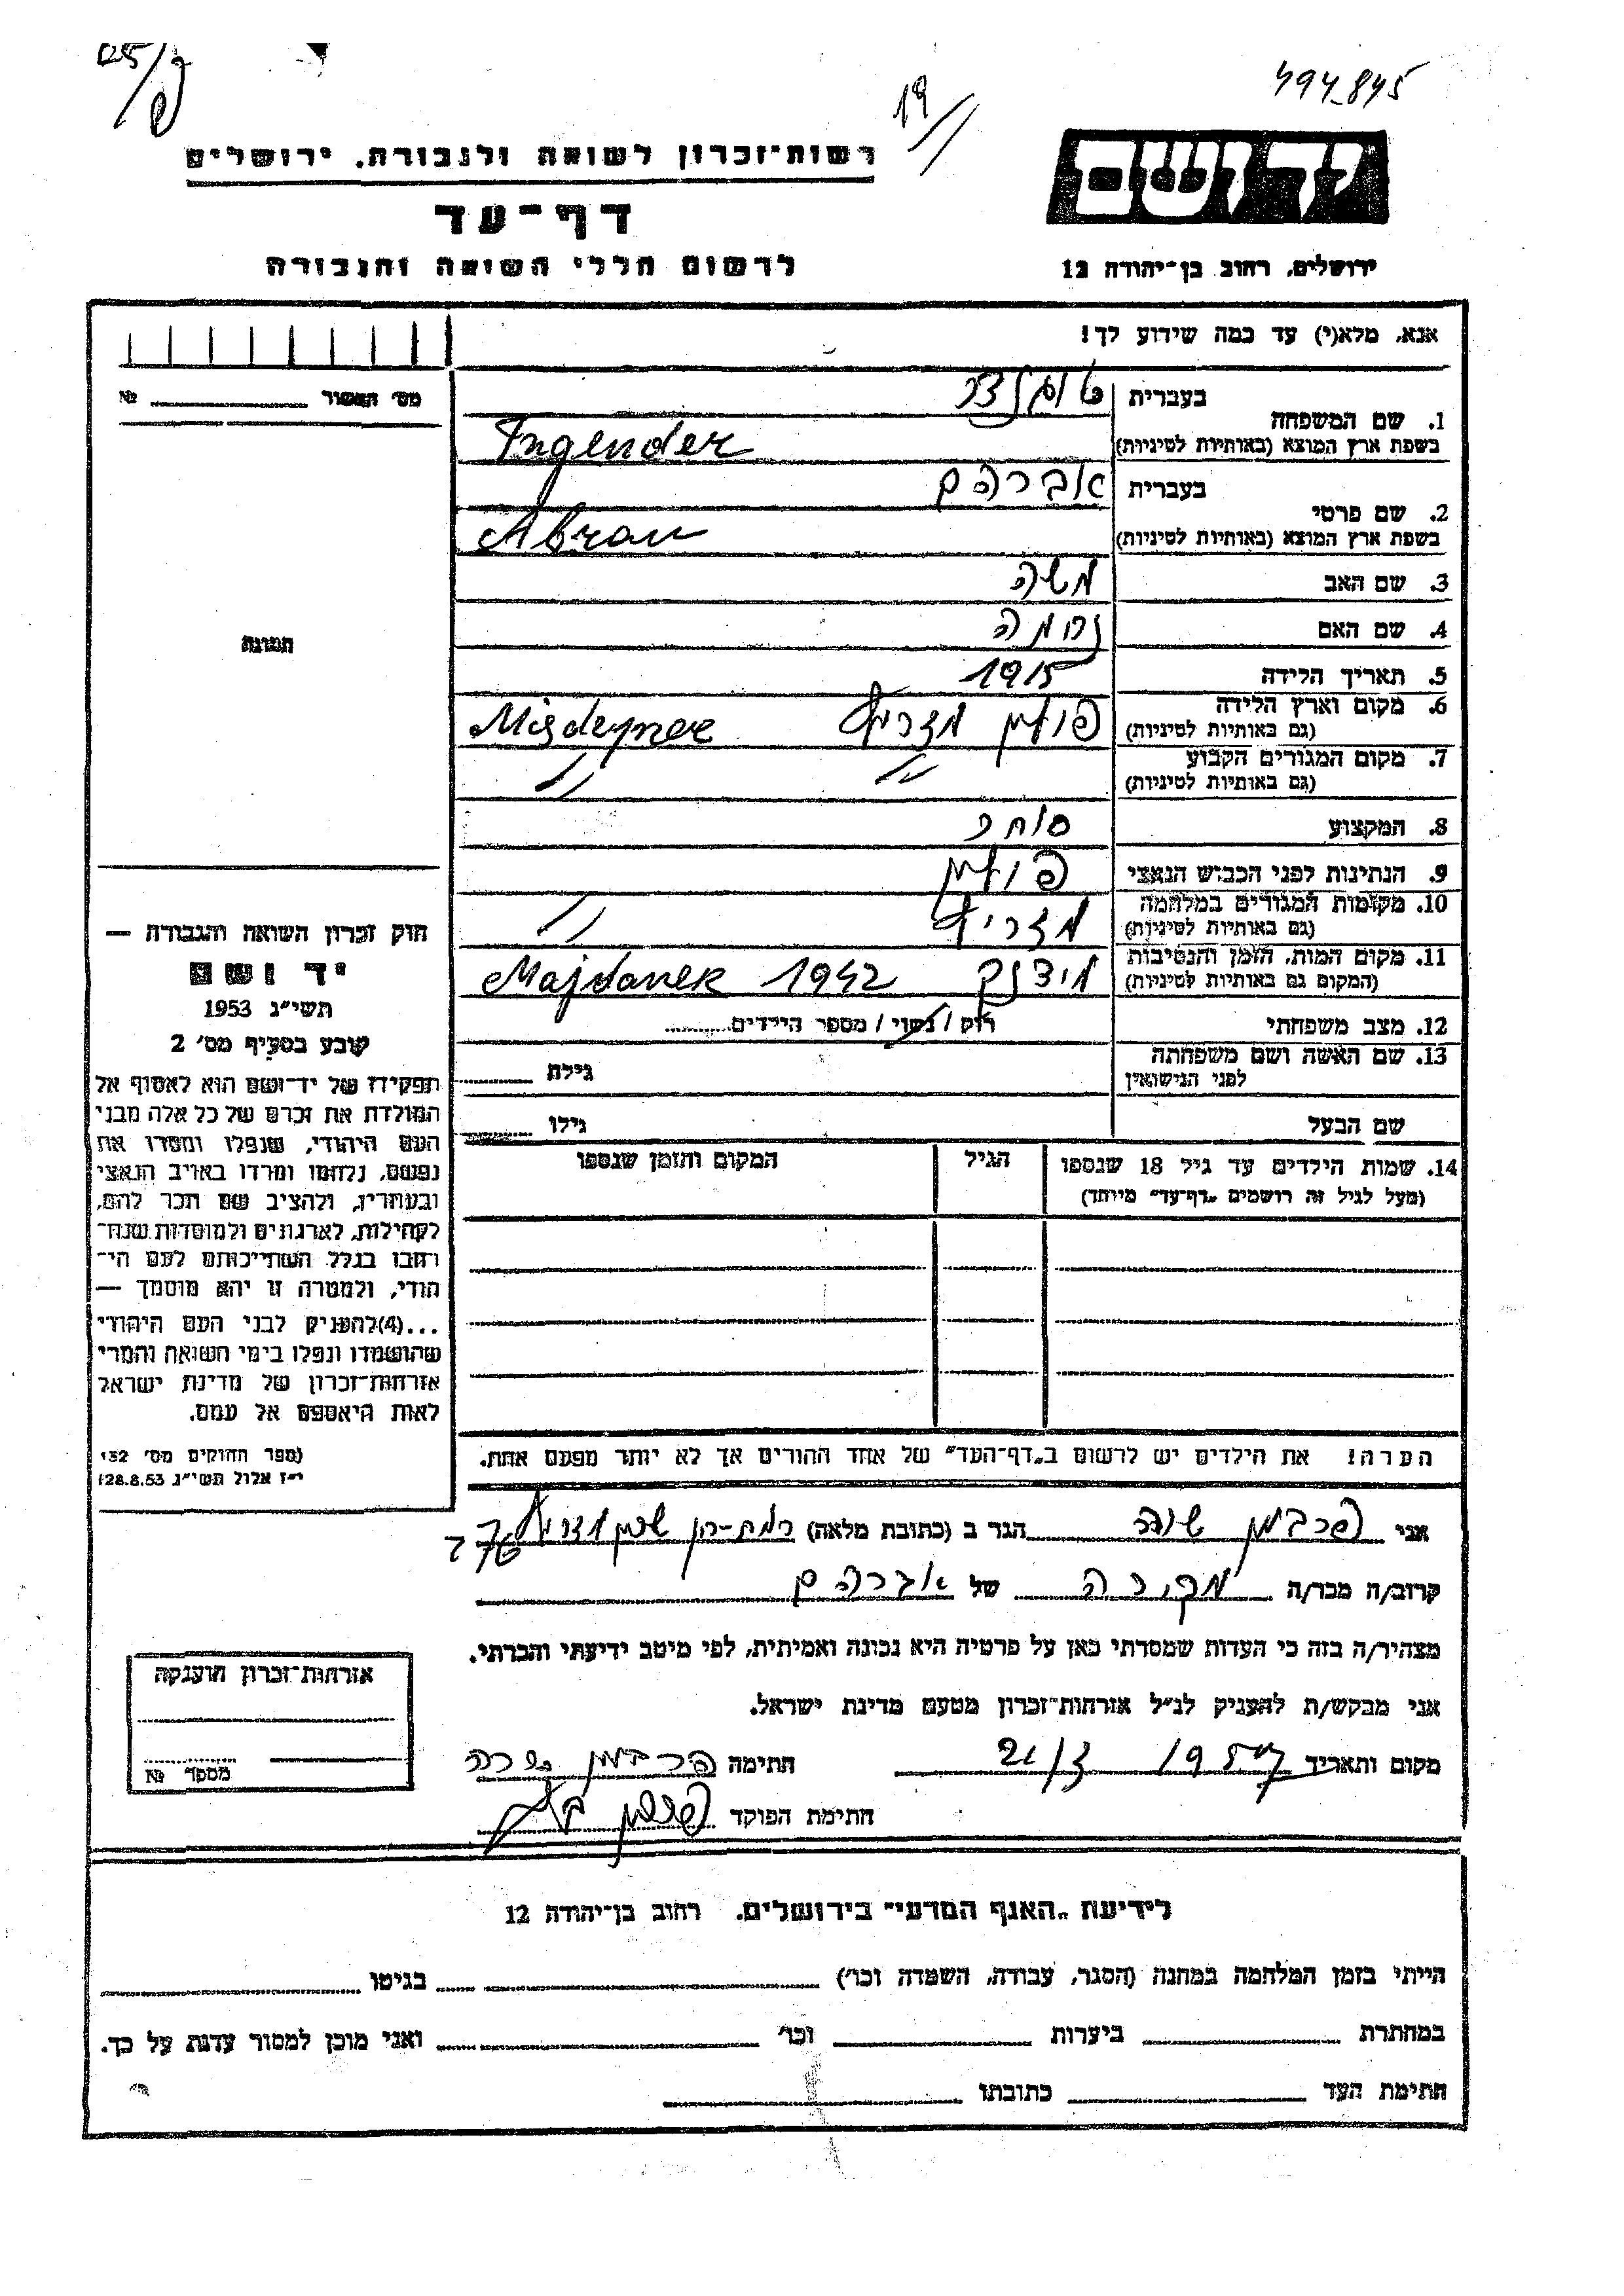 494845
19
רשות־זכרון לשואה ולגבורה. ירושלים
דף־עד
לרשום חללי השואה והגבורה
יד ושם
ירושלים, רחוב בן־יהודה 12
אנא, מלא(י) עד כמה שידוע לך!
מס׳ האשור № 
1. שם המשפחה
בעברית
בשפת ארץ המוצא (באותיות לטיניות) Ingender
2. שם פרטי
בעברית אברהם
בשפת ארץ המוצא (באותיות לטיניות) Abram
3. שם האב משה
4. שם האם נחמה
5. תאריך הלידה 1915
6. מקום וארץ הלידה פולין
(גם באותיות לטיניות)
7. מקום המגורים הקבוע
(גם באותיות לטיניות)
8. המקצוע סוחר
9. הנתינות לפני הכבוש הנאצי פולין
10. מקומות המגורים במלחמה
(גם באותיות לטיניות)
11. מקום המות, הזמן והנסיבות
(המקום גם באותיות לטיניות) Majdanek 1942
12. מצב משפחתי רוק / נשוי / מספר הילדים
13. שם האשה ושם משפחתה
לפני הנישואין גילה
שם הבעל גילו
14. שמות הילדים עד גיל 18 שנספו
(מעל לגיל זה רושמים „דף־עד” מיוחד)
הגיל
המקום והזמן שנספו
הערה! את הילדים יש לרשום ב„דף־העד” של אחד ההורים אך לא יותר מפעם אחת.
תמונה
חוק זכרון השואה והגבורה —
יד ושם
תשי״ג 1953
קובע בסעיף מס׳ 2
תפקידו של יד־ושם הוא לאסוף אל
המולדת את זכרם של כל אלה מבני
העם היהודי, שנפלו ומסרו את
נפשם, נלחמו ומרדו באויב הנאצי
ובעוזריו, ולהציב שם וזכר להם,
לקהילות, לארגונים ולמוסדות שנח־
רבו בגלל השתייכותם לעם הי־
הודי, ולמטרה זו יהא מוסמך —
...(4)להעניק לבני העם היהודי
שהושמדו ונפלו בימי השואה והמרי
אזרחות־זכרון של מדינת ישראל
לאות היאספם אל עמם.
(ספר החוקים מס׳ 132
י״ז אלול תשי״ג 28.8.53)
אני פרבמן שרה הגר ב (כתובת מלאה) רמת-גן
קרוב/ה מכר/ה מכירה של אברהם
מצהיר/ה בזה כי העדות שמסרתי כאן על פרטיה היא נכונה ואמיתית, לפי מיטב ידיעתי והכרתי.
אני מבקש/ת להעניק לנ״ל אזרחות־זכרון מטעם מדינת ישראל.
מקום ותאריך חתימה
חתימת הפוקד
אזרחות־זכרון הוענקה
מספר №
לידיעת „האגף המדעי” בירושלים. רחוב בן־יהודה 12
הייתי בזמן המלחמה במחנה (הסגר, עבודה, השמדה וכו׳) בגיטו
במחתרת ביערות וכו׳ ואני מוכן למסור עדות על כך.
חתימת העד כתובתו